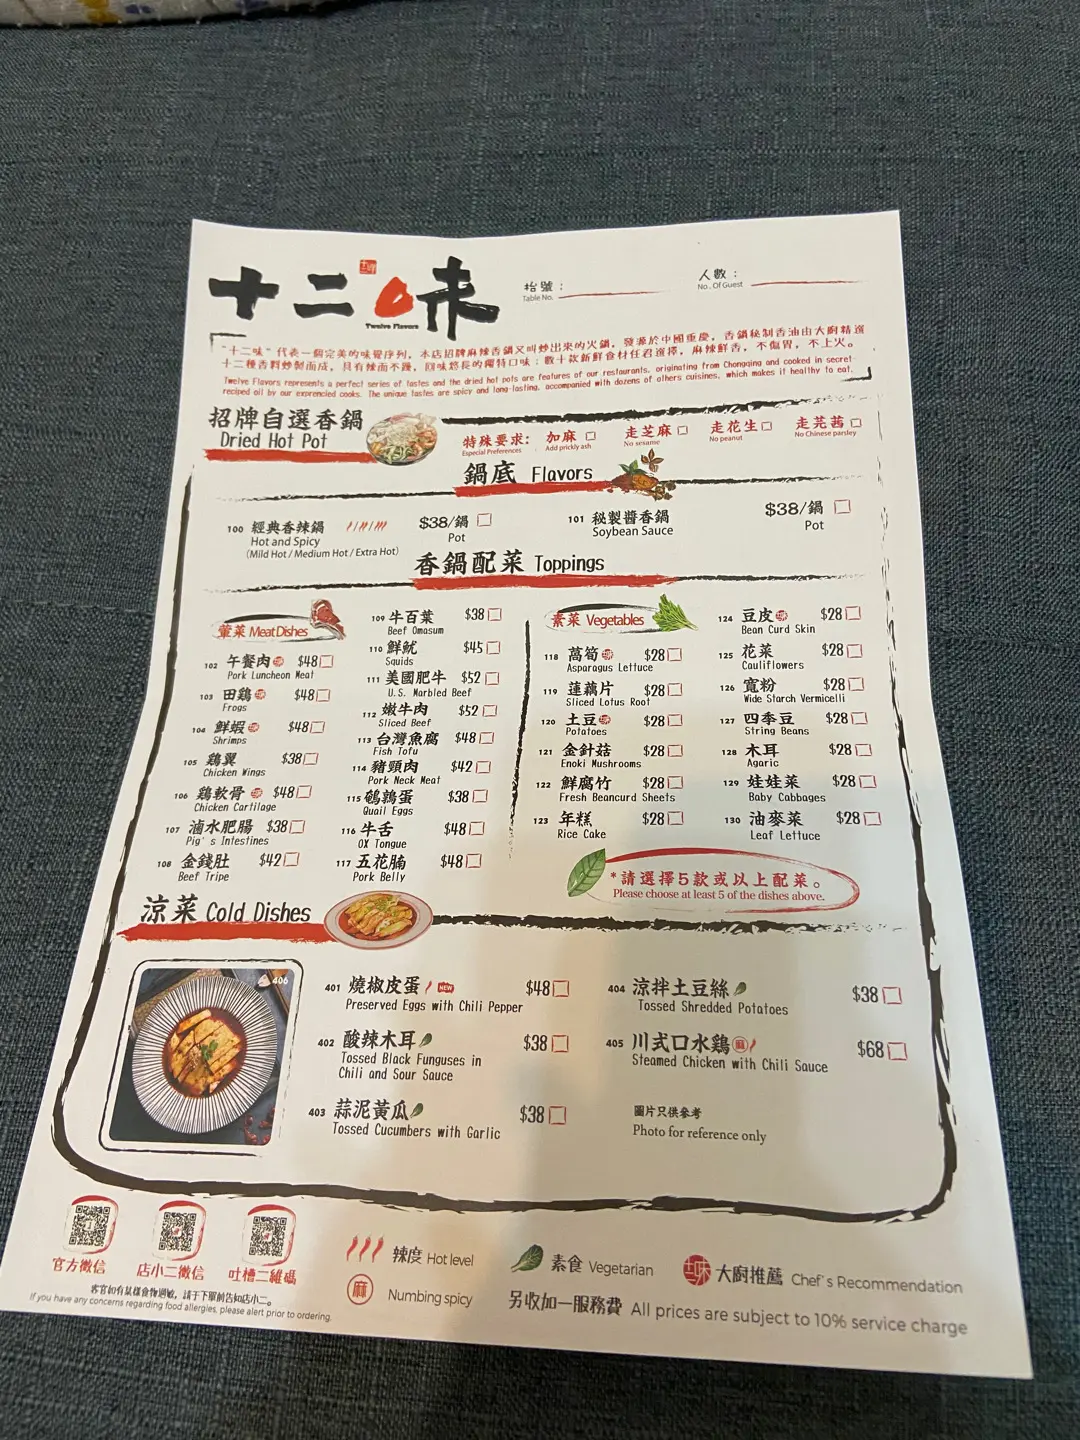 十二味
Twelve Flavors
枱號：
Table No.
人數：
No. Of Guest
"十二味"代表一個完美的味覺序列，本店招牌麻辣香鍋又叫炒出來的火鍋，發源於中國重慶，香鍋秘制香油由大廚精選
十二種香料炒製而成，具有辣而不燥，回味悠長的獨特口味；數十款新鮮食材任君選擇，麻辣鮮香，不傷胃，不上火。
Twelve Flavors represents a perfect series of tastes and the dried hot pots are features of our restaurants, originating from Chongqing and cooked in secret-
reciped oil by our exprencied cooks. The unique tastes are spicy and long-lasting, accompanied with dozens of others cuisines, which makes it healthy to eat.
招牌自選香鍋
Dried Hot Pot
特殊要求: 加麻 走芝麻 走花生 走芫茜
Especial Preferences Add prickly ash No sesame No peanut No Chinese parsley
鍋底 Flavors
100 經典香辣鍋 $38/鍋
Hot and Spicy Pot
(Mild Hot / Medium Hot / Extra Hot)
101 秘製醬香鍋 $38/鍋
Soybean Sauce Pot
香鍋配菜 Toppings
葷菜 Meat Dishes
102 午餐肉 $48
Pork Luncheon Meat
103 田鷄 $48
Frogs
104 鮮蝦 $48
Shrimps
105 鷄翼 $38
Chicken Wings
106 鷄軟骨 $48
Chicken Cartilage
107 滷水肥腸 $38
Pig's Intestines
108 金錢肚 $42
Beef Tripe
109 牛百葉 $38
Beef Omasum
110 鮮魷 $45
Squids
111 美國肥牛 $52
U.S. Marbled Beef
112 嫩牛肉 $52
Sliced Beef
113 台灣魚腐 $48
Fish Tofu
114 豬頸肉 $42
Pork Neck Meat
115 鵪鶉蛋 $38
Quail Eggs
116 牛舌 $48
OX Tongue
117 五花腩 $48
Pork Belly
素菜 Vegetables
118 萵筍 $28
Asparagus Lettuce
119 蓮藕片 $28
Sliced Lotus Root
120 土豆 $28
Potatoes
121 金針菇 $28
Enoki Mushrooms
122 鮮腐竹 $28
Fresh Beancurd Sheets
123 年糕 $28
Rice Cake
124 豆皮 $28
Bean Curd Skin
125 花菜 $28
Cauliflowers
126 寬粉 $28
Wide Starch Vermicelli
127 四季豆 $28
String Beans
128 木耳 $28
Agaric
129 娃娃菜 $28
Baby Cabbages
130 油麥菜 $28
Leaf Lettuce
*請選擇5款或以上配菜。
Please choose at least 5 of the dishes above.
涼菜 Cold Dishes
406
401 燒椒皮蛋 NEW $48
Preserved Eggs with Chili Pepper
402 酸辣木耳 $38
Tossed Black Funguses in
Chili and Sour Sauce
403 蒜泥黃瓜 $38
Tossed Cucumbers with Garlic
404 涼拌土豆絲 $38
Tossed Shredded Potatoes
405 川式口水鷄 麻 $68
Steamed Chicken with Chili Sauce
圖片只供參考
Photo for reference only
官方微信
店小二微信
吐槽二維碼
客官如有某樣食物過敏，請于下單前告知店小二。
If you have any concerns regarding food allergies, please alert prior to ordering.
辣度 Hot level
麻 Numbing spicy
素食 Vegetarian
十二味 大廚推薦 Chef's Recommendation
另收加一服務費 All prices are subject to 10% service charge